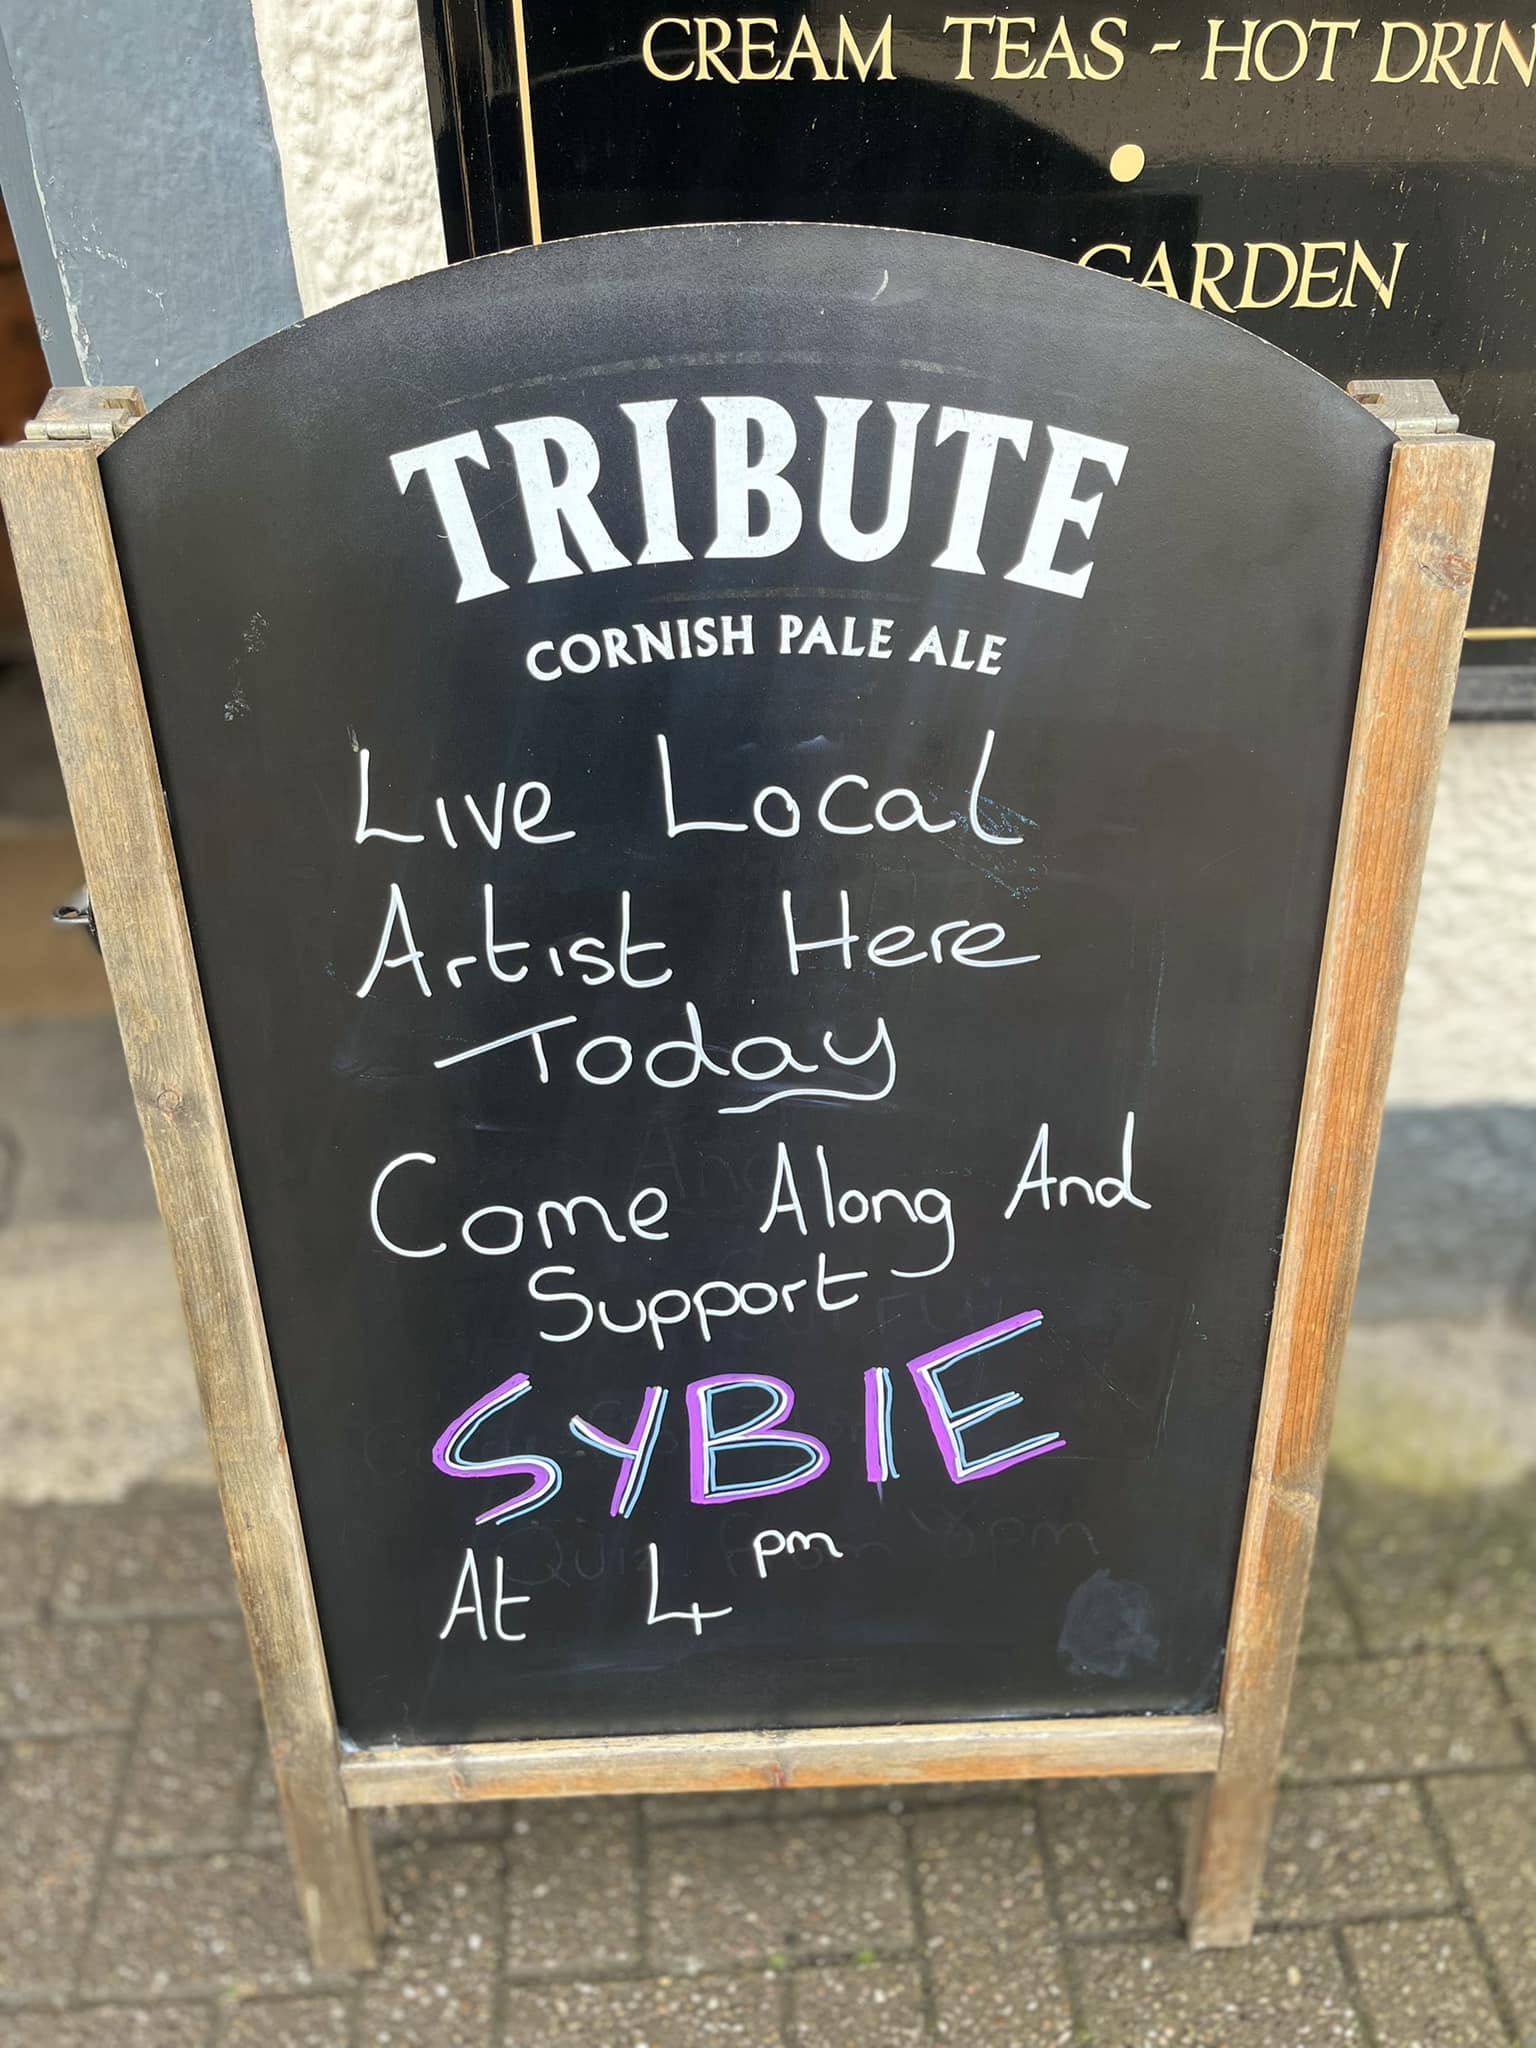 CREAM TEAS - HOT DRIN
GARDEN
TRIBUTE
CORNISH PALE ALE
Live Local
Artist Here
Today
Come Along And
Support
SYBIE
At 4pm